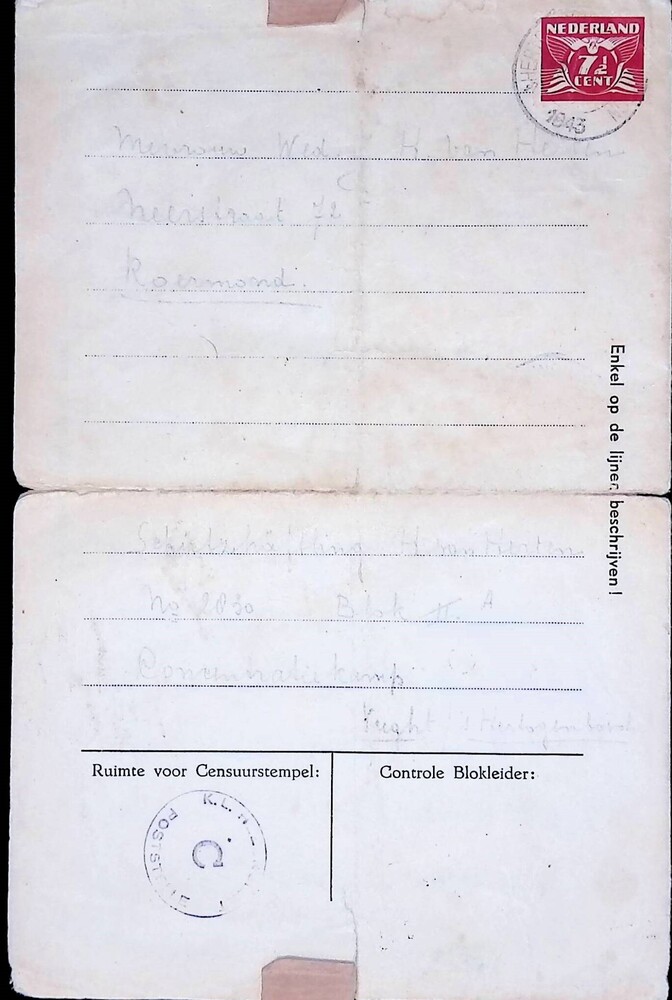 NEDERLAND
7½
CENT
1943
Mevrouw Wed. H. van Herten
Neerstraat 72
Roermond.
Enkel op de lijnen beschrijven!
Schutzhäftling H. van Herten
No 2830 Blok II. A
Concentratiekamp
Vught 's Hertogenbosch
Ruimte voor Censuurstempel:
Controle Blokleider:
K.L.
C